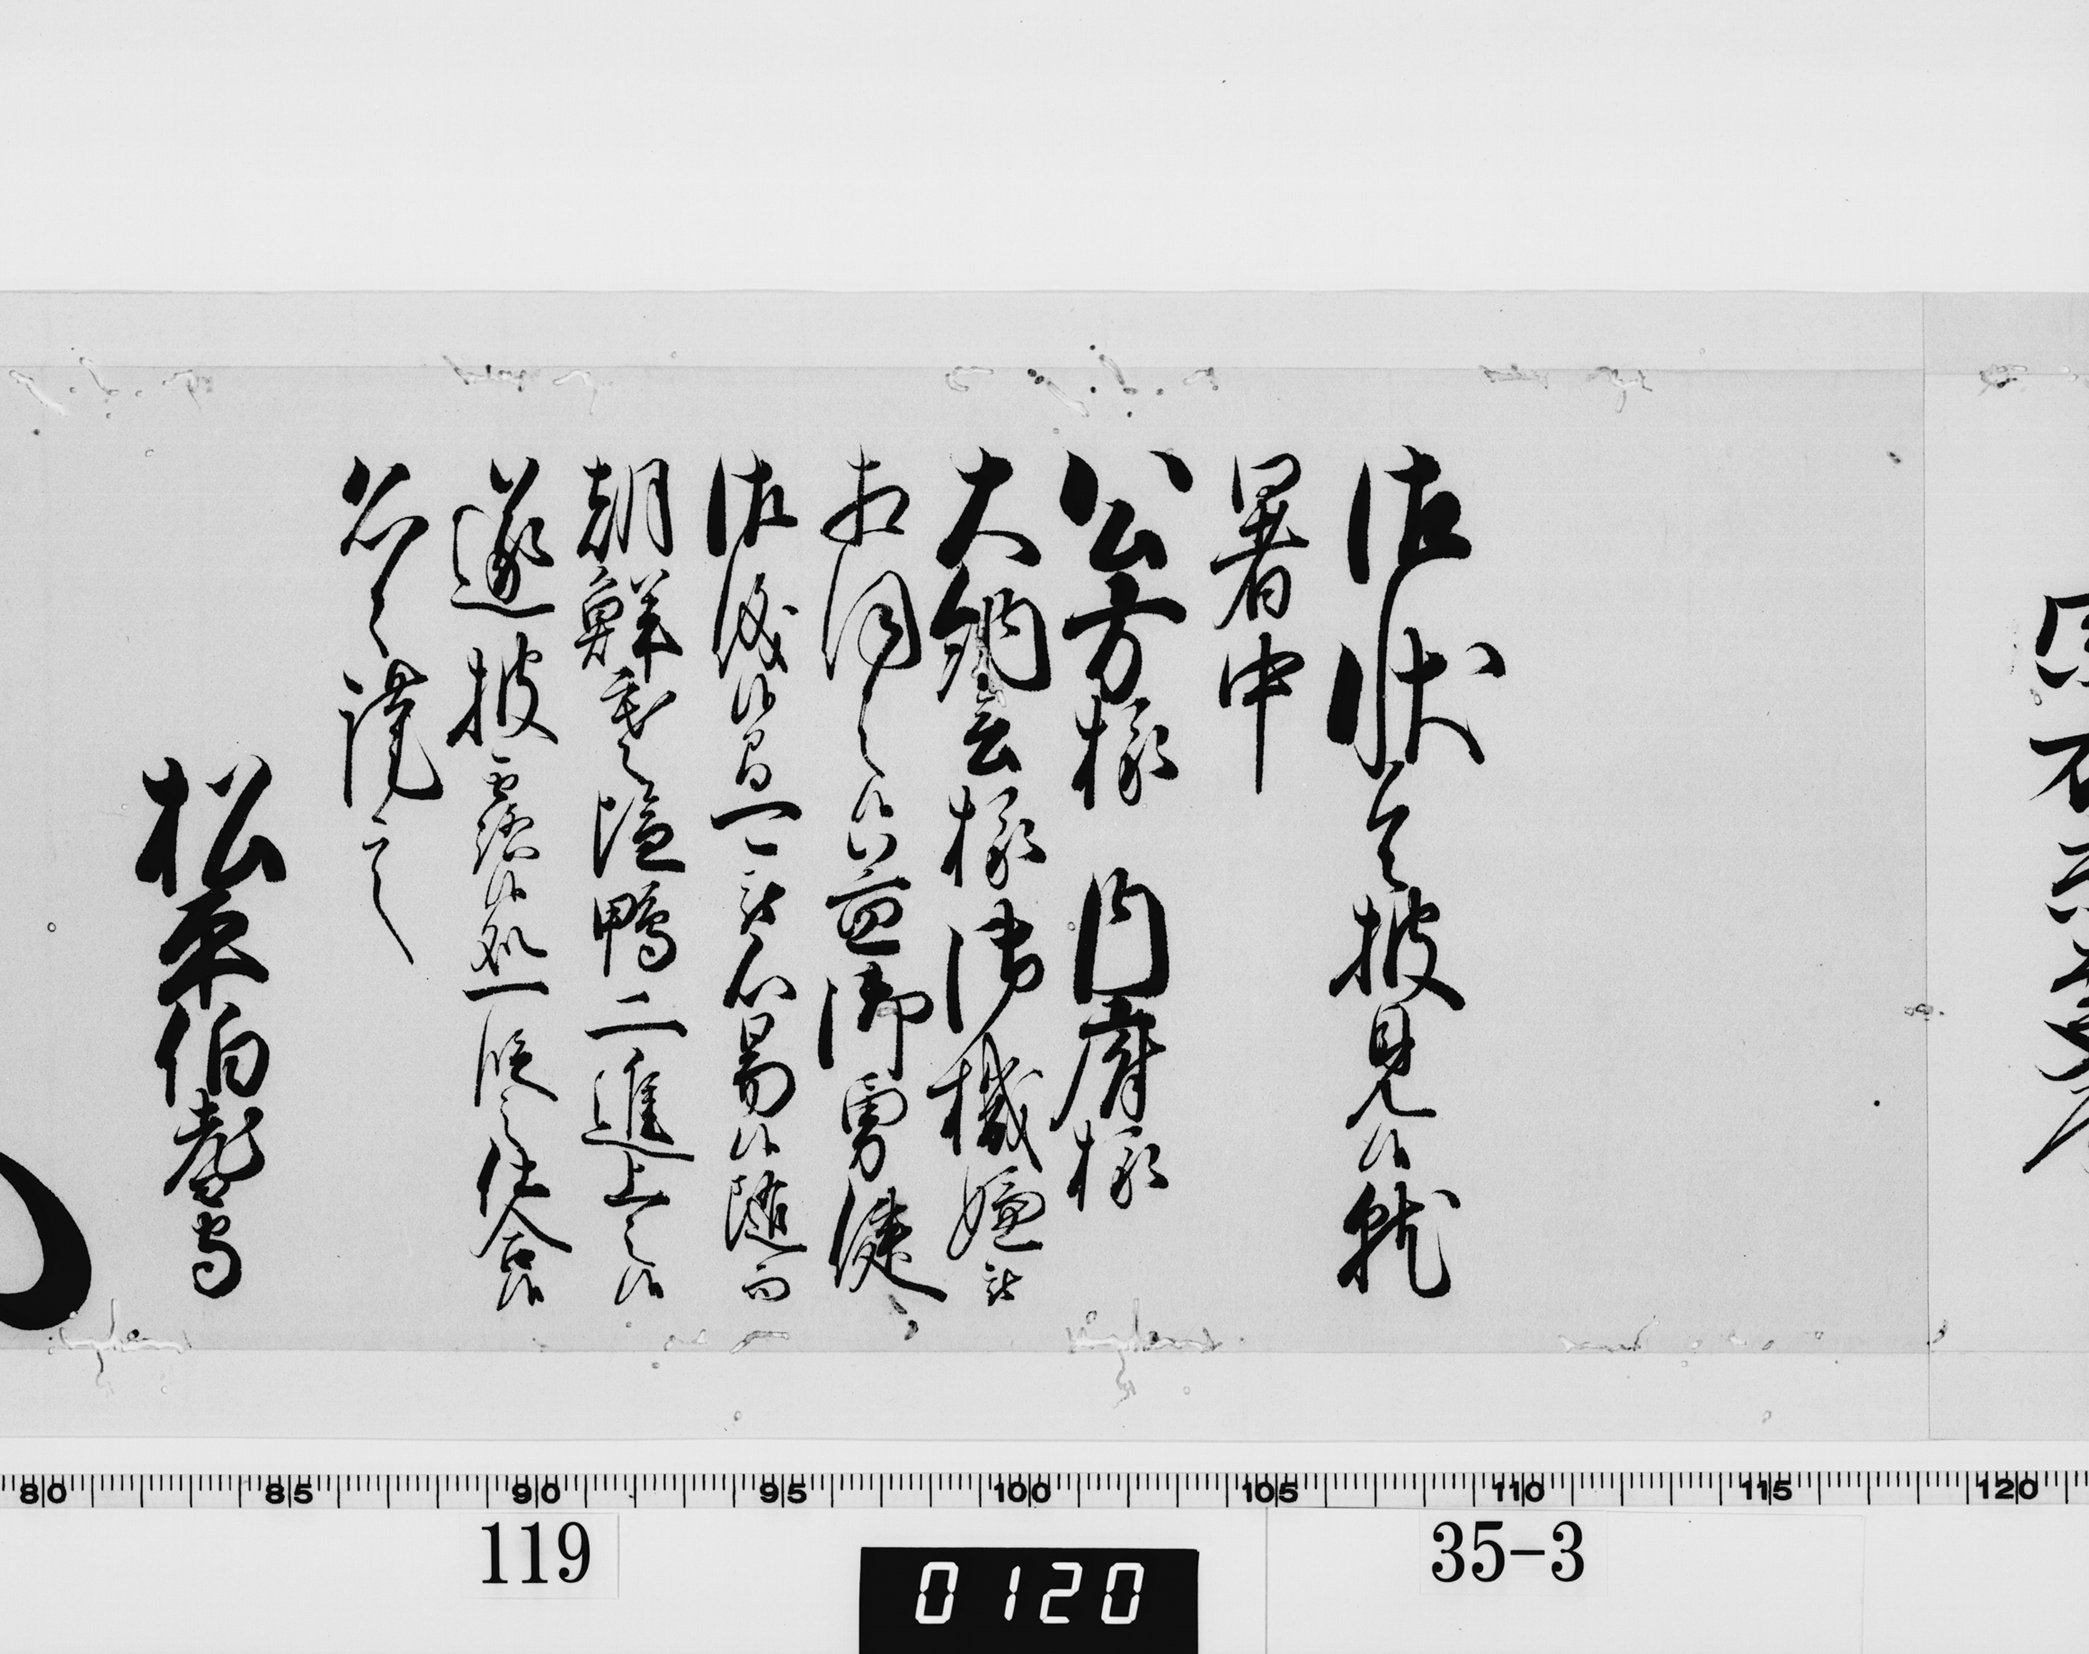 御状令披見候就
暑中
公方様 内府様
大納言様御機嫌被
相伺之候益御勇健
御儀候間可被心易候随而
朝鮮 之塩鴨二進上之候
遂披露候処一段之仕合候
恐々謹言
松平伯耆守
80 85 90 95 100 105 110 115 120
119
0120
35-3